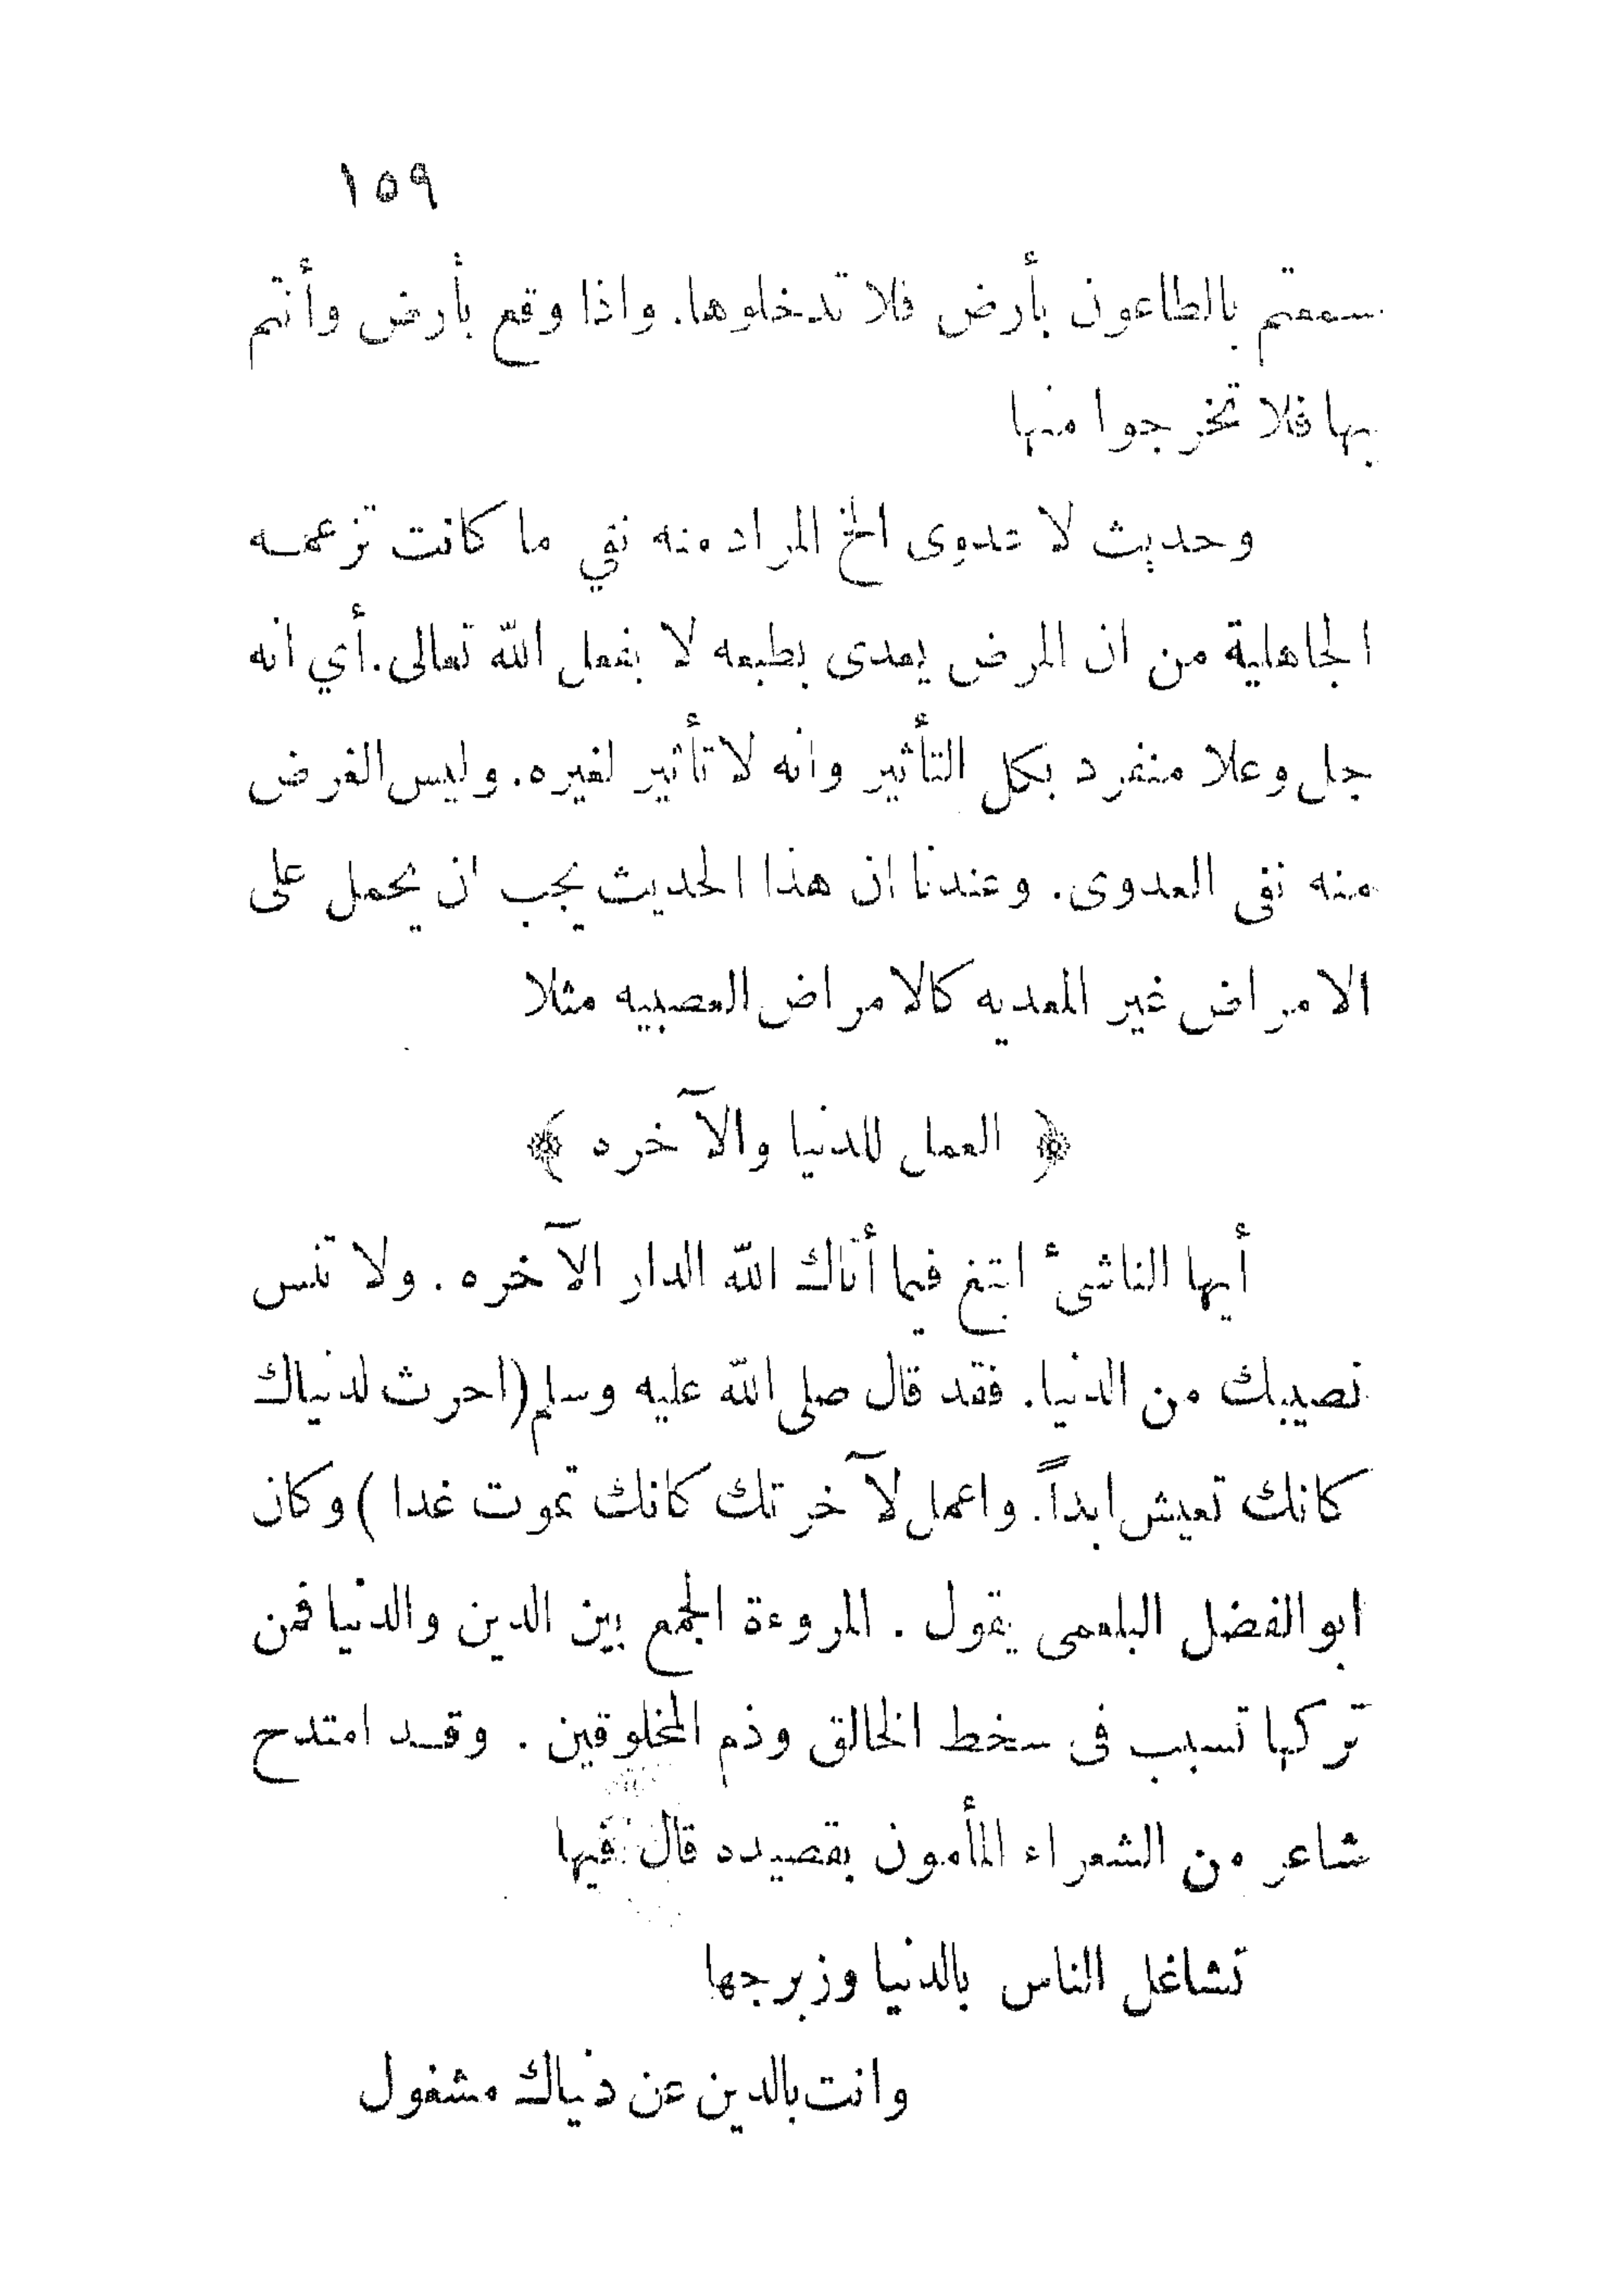 ١٥٩
سمعتم بالطاعون بأرض فلا تدخلوها. واذا وقع بأرض وأنتم
بها فلا تخرجوا منها
وحديث لا عدوى الخ المراد منه نفي ما كانت تزعمه
الجاهلية من ان المرض يعدى بطبعه لا بفعل الله تعالى. أي انه
جل وعلا منفرد بكل التأثير وانه لا تأثير لغيره. وليس الغرض
منه نفى العدوى. وعندنا ان هذا الحديث يجب ان يحمل على
الامراض غير المعديه كالامراض العصبيه مثلا
﴿ العمل للدنيا والآخره ﴾
أيها الناشئ ابتغ فيما أتاك الله الدار الآخره. ولا تنس
نصيبك من الدنيا. فقد قال صلى الله عليه وسلم (احرث لدنياك
كانك تعيش ابداً. واعمل لآخرتك كانك تموت غدا) وكان
ابو الفضل البلعمى يقول. المروءة الجمع بين الدين والدنيا فمن
تركها تسبب فى سخط الخالق وذم المخلوقين. وقد امتدح
شاعر من الشعراء المأمون بقصيده قال فيها
تشاغل الناس بالدنيا وزبرجها
وانت بالدين عن دنياك مشغول